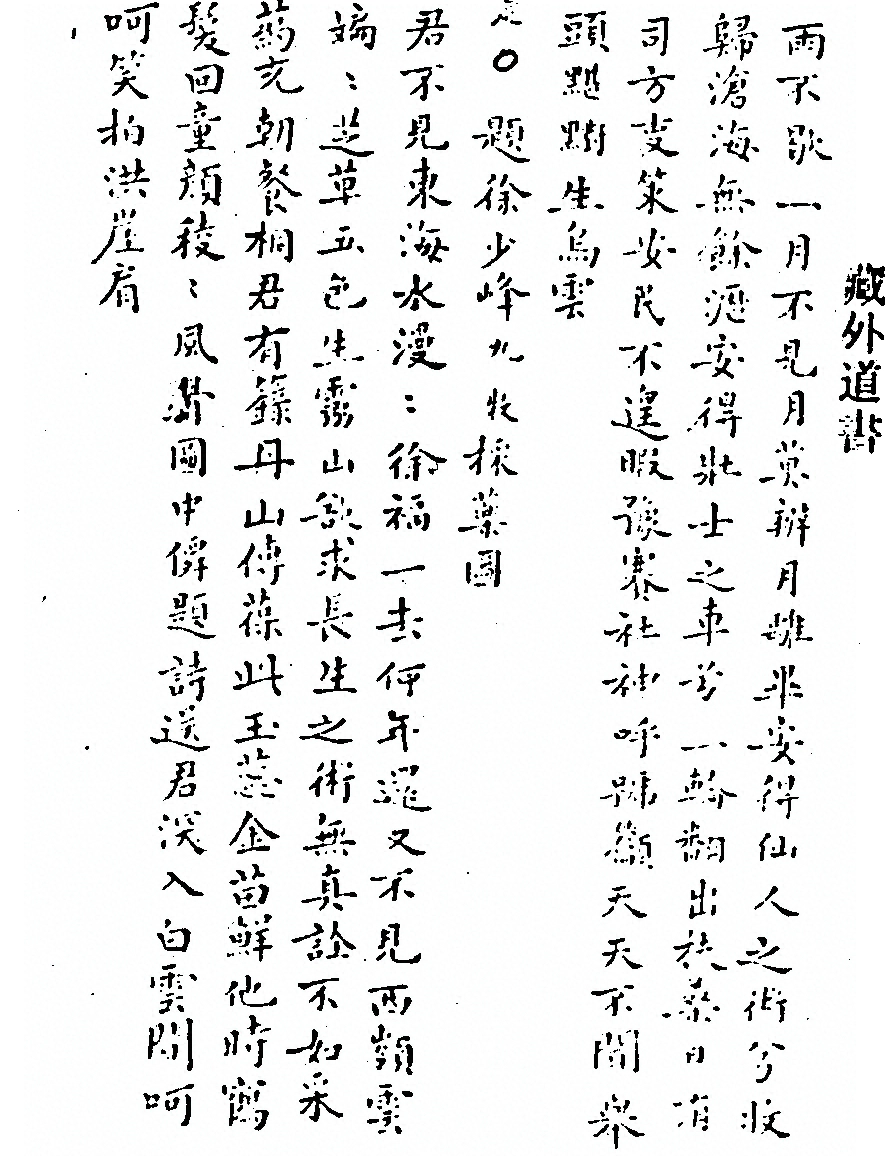 藏外道書
雨不歇一月不見月莫辦月離畢安得仙人之術兮收
歸滄海無餘滴安得壯士之車兮一輪翻出扶桑日有
司方叓策安民不遑暇豫賽社神呼號籲天天不聞舉
頭點點生烏雲
○題徐少峰九牧採藥圖
君不見東海水漫〻徐福一去何年還又不見西嶺雲
漏〻芝草五色生靈山欲求長生之術無真詮不如采
藥充朝餐桐君有籙丹山傳葆此玉蕊金苗鮮他時鶴
髮回童顏稜〻風骨圖中僊題詩送君深入白雲間呵
呵笑拍洪崖肩